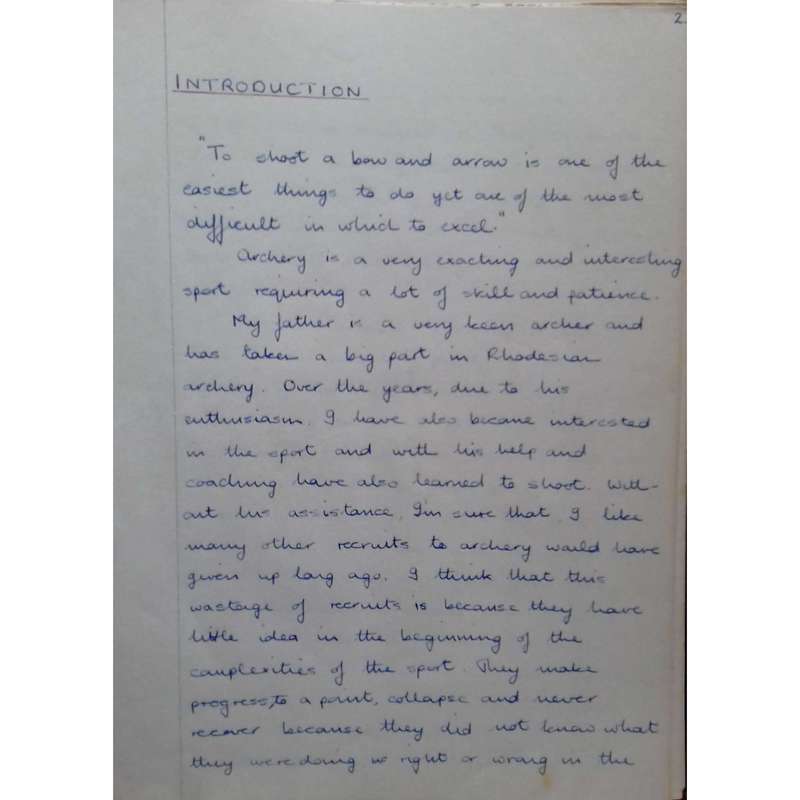 2.
INTRODUCTION
"To shoot a bow and arrow is one of the
easiest things to do yet one of the most
difficult in which to excel."
Archery is a very exacting and interesting
sport requiring a lot of skill and patience.
My father is a very keen archer and
has taken a big part in Rhodesian
archery. Over the years, due to his
enthusiasm, I have also become interested
in the sport and with his help and
coaching have also learned to shoot. With-
out his assistance, I'm sure that, I like
many other recruits to archery would have
given up long ago. I think that this
wastage of recruits is because they have
little idea in the beginning of the
complexities of the sport. They make
progress, to a point, collapse and never
recover because they did not know what
they were doing right or wrong in the